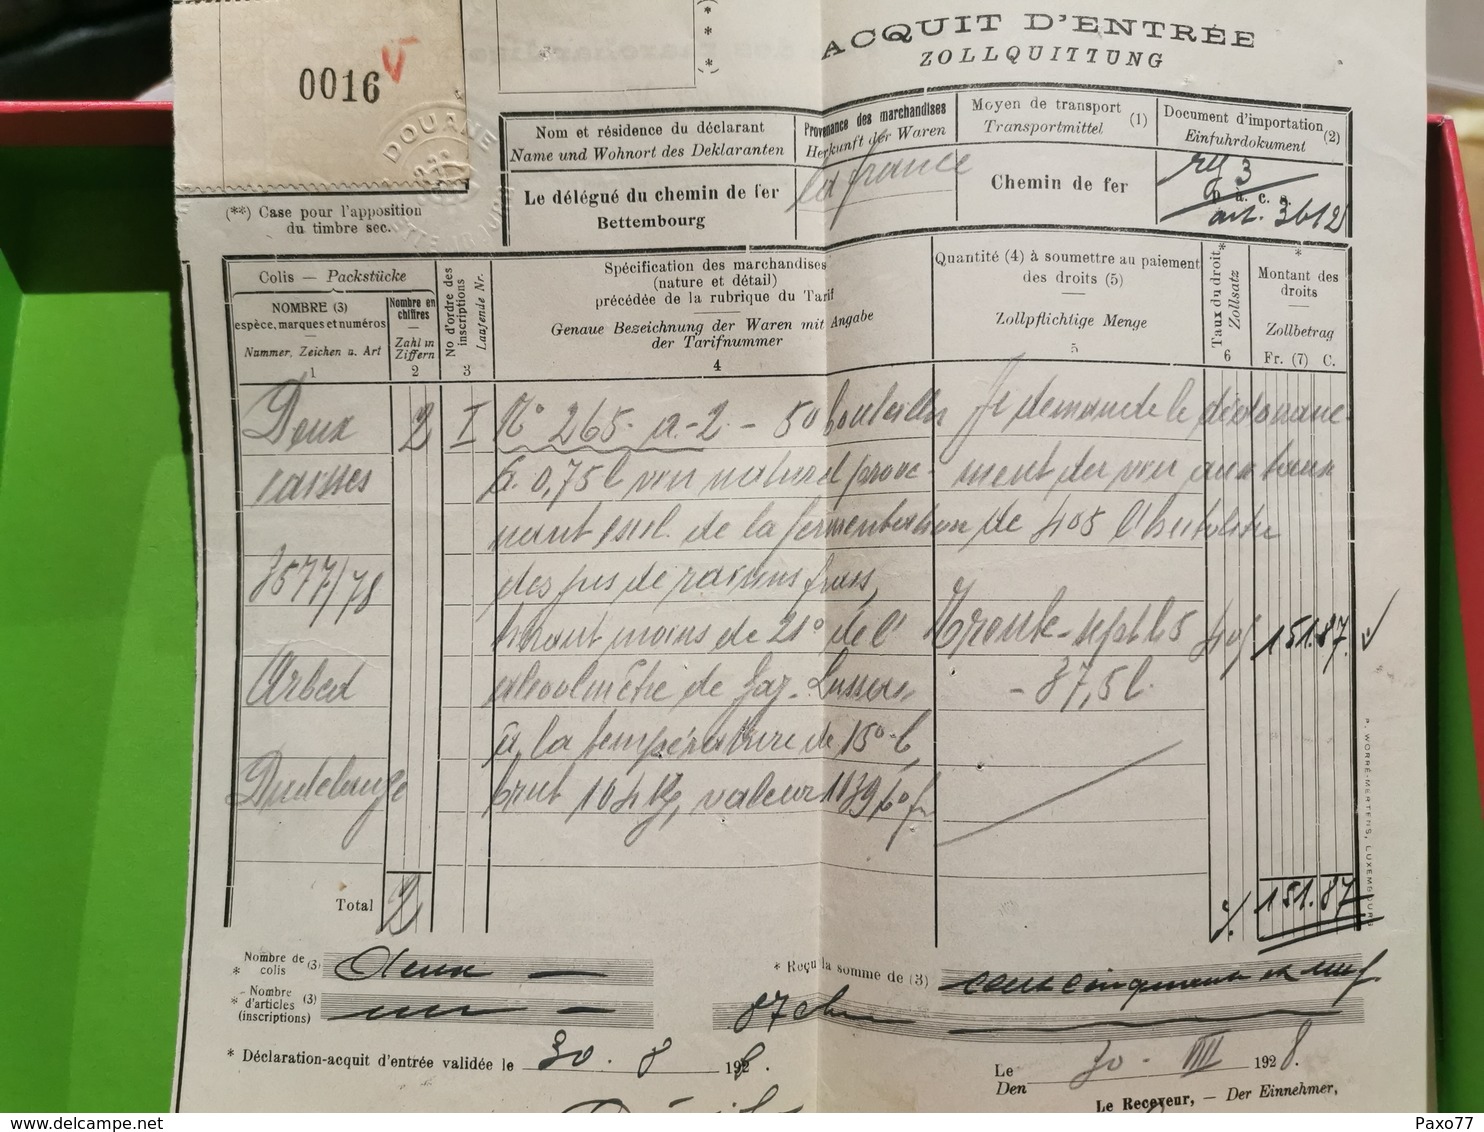 0016
DOUANE
ACQUIT D'ENTRÉE
ZOLLQUITTUNG
(**) Case pour l'apposition
du timbre sec.
Nom et résidence du déclarant
Name und Wohnort des Deklaranten
Provenance des marchandises
Herkunft der Waren
Moyen de transport (1)
Transportmittel
Document d'importation (2)
Einfuhrdokument
Le délégué du chemin de fer
Bettembourg
la france
Chemin de fer
reg 3
p. a. c. a.
art. 3612
Colis — Packstücke
NOMBRE (3)
espèce, marques et numéros
Nummer, Zeichen u. Art
1
Nombre en chiffres
Zahl in Ziffern
2
No d'ordre des inscriptions
Laufende Nr.
3
Spécification des marchandises
(nature et détail)
précédée de la rubrique du Tarif
Genaue Bezeichnung der Waren mit Angabe
der Tarifnummer
4
Quantité (4) à soumettre au paiement
des droits (5)
Zollpflichtige Menge
5
Taux du droit *
Zollsatz
6
*
Montant des
droits
Zollbetrag
Fr. (7) C.
Deux 2 I No 265-a-2 - 50 bouteilles Je demande le dédouane-
caisses à 0,75 l vin naturel prove- ment du vin au taux
nant excl. de la fermentation de 405 l'hectolitre
3577/78 des jus de raisins frais,
titrant moins de 21° de l' Trente-sept l 5 405 151.87.
Arbed alcoolmètre de Gay-Lussac - 37,5 l.
à la température de 15° -b
Dudelange brut 104 kg, valeur 1139,60 fr
Total 2 151.87
P. WORRÉ-MERTENS, LUXEMBOURG
Nombre de
* colis (3) deux —
- Nombre
* d'articles (3)
(inscriptions) un —
* Reçu la somme de (3) cent cinquante et un f
87 ctm
* Déclaration-acquit d'entrée validée le 30 . 8 1928.
Le
Den 30 - VIII 1928.
Le Receveur, — Der Einnehmer,
www.delcampe.net
Paxo77